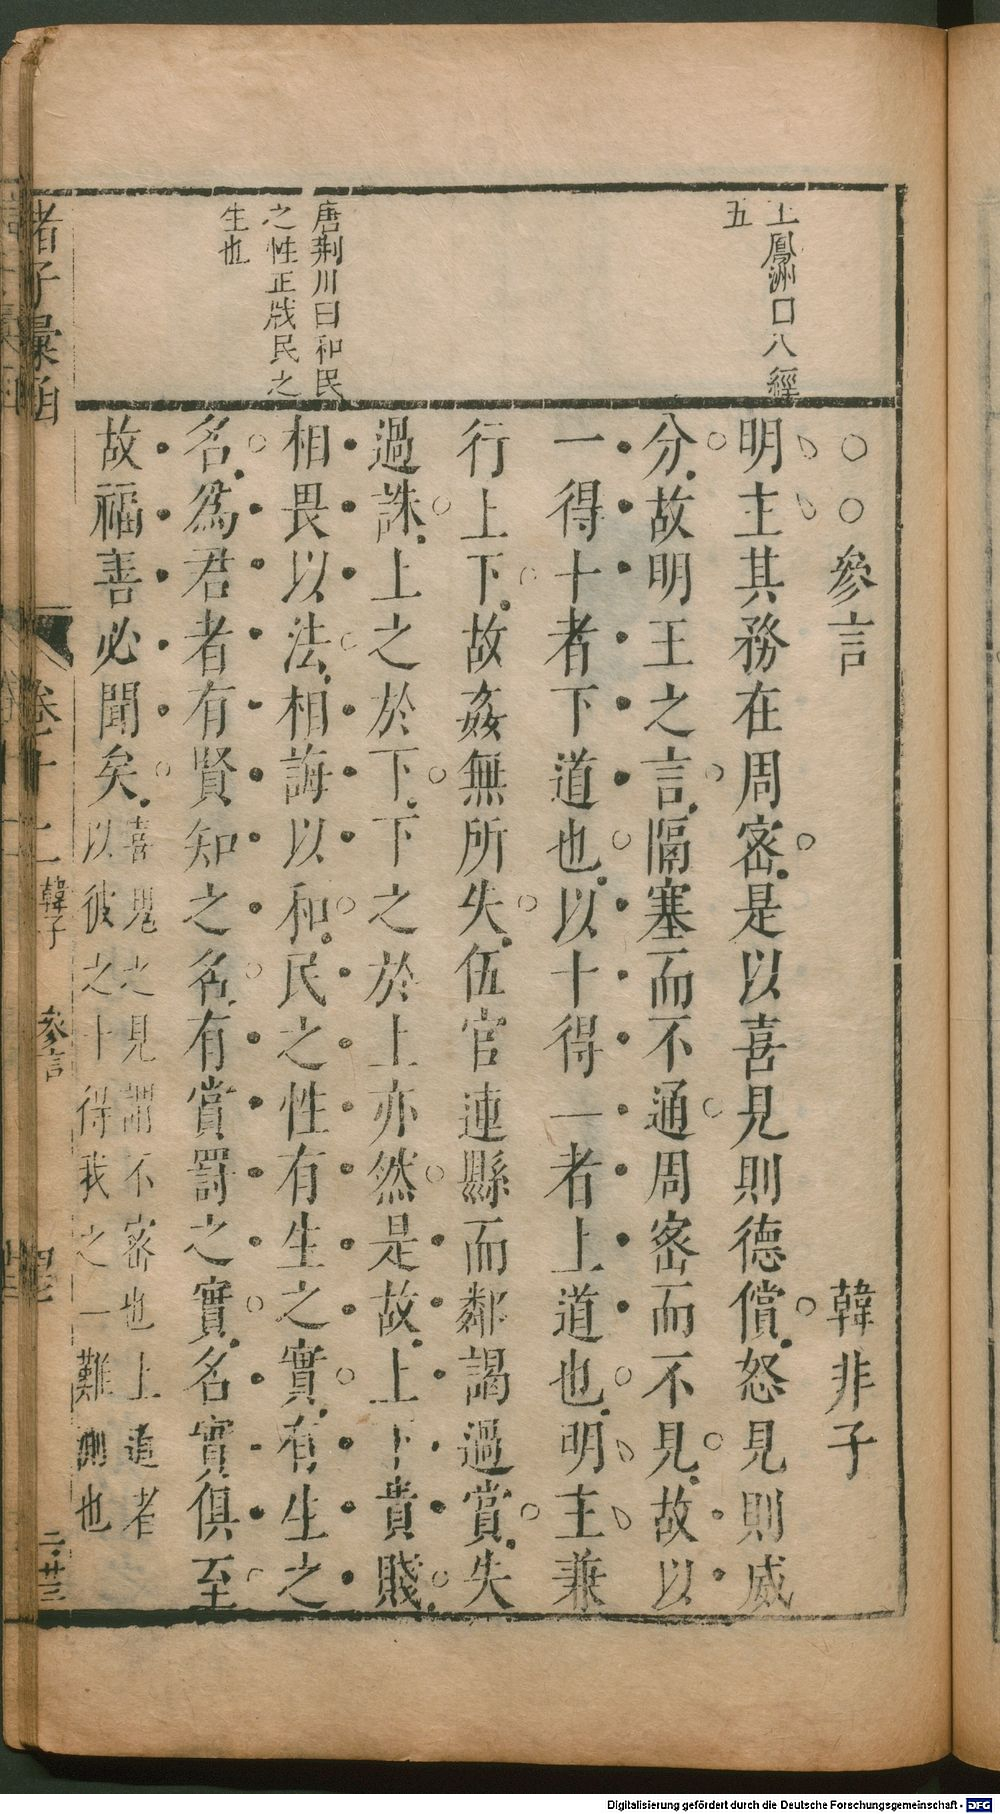 參言 韓非子
明主其務在周密是以喜見則德償怒見則威
分故明王之言隔塞而不通周密而不見故以
一得十者下道也以十得一者上道也明主兼
行上下故姦無所失伍官連縣而鄰謁過賞失
過誅上之於下下之於上亦然是故上下貴賤
相畏以法相誨以和民之性有生之實有生之
名為君者有賢知之名有賞罰之實名實俱至
故福善必聞矣
喜見之見謂不密也上道者
以彼之十得我之一難測也
王鳳洲曰八經
五
唐荊川曰和民
之性正戕民之
生也
諸子彙函
卷十二
韓子
參言
二·廿三
Digitalisierung gefördert durch die Deutsche Forschungsgemeinschaft - DFG